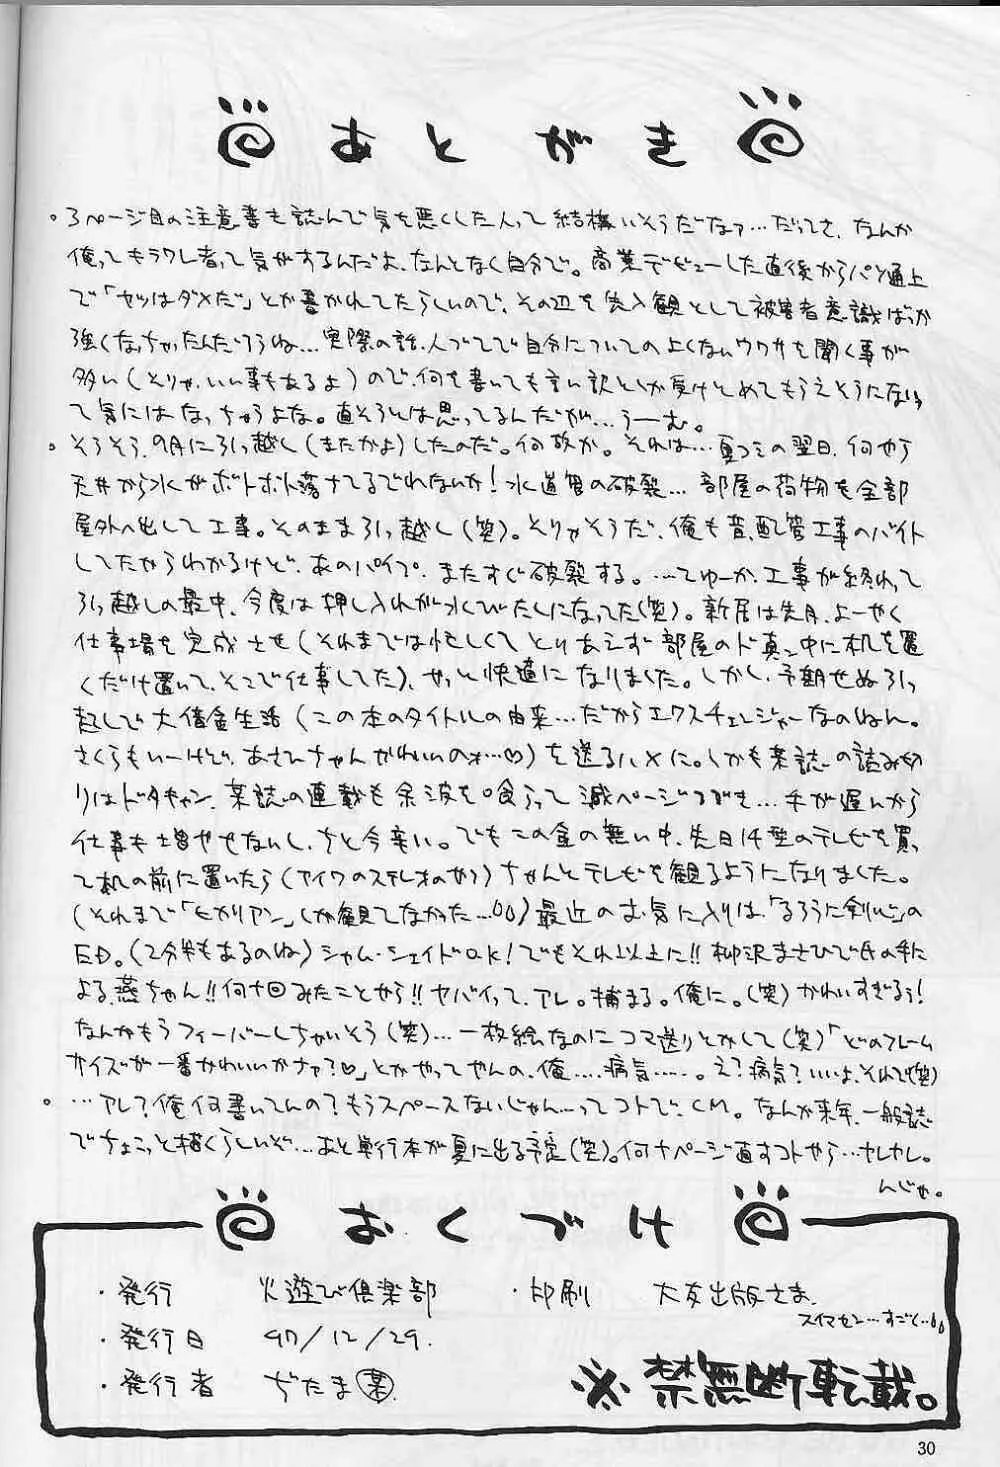 あとがき
。3ページ目の注意書を読んで気を悪くした人って結構いそうだなァ…だってさ、なんか
俺ってキラワレ者って気がするんだよ、なんとなく自分で。商業デビューした直後からパソ通上
で「ヤツはダメだ」とか書かれてたらしいので、その辺を先入観として被害者意識ばっか
強くなっちゃったんだろうね…実際の話、人づてで自分についての上くないウワサを聞く事が
多い(そりゃ、いい事もあるよ)ので、何を書いても言い訳としか受けとめてもらえそうにないっ
て気にはなっちゃうよな。直そうとは思ってるんだが…うーむ。
。そろそろ、9月に引っ越し(またかよ)したのだ。何故か。それは…夏コミの翌日、何やら
天井から水がボトボト落ちてるでわないか!水道管の破裂…部屋の荷物を全部
屋外へ出して工事。そのまま引っ越し(笑)。そりゃそうだ、俺も昔、配管工事のバイト
してたからわかるけど、あのパイプ、またすぐ破裂する。…てゆーか、工事が終わって
引っ越しの最中、今度は押し入れが水びたしになってた(笑)。新居は先月、よーやく
仕事場を完成させ(それまでは忙しくてとりあえず部屋のド真ン中に机を置
くだけ置いて、そこで仕事してた)、やっと快適になりました。しかし、予期せぬ引っ
越しで大借金生活(この本のタイトルの由来…だからエクスチェンジャーなのねん。
さくらもいーけど、あさひちゃんかわいいのォ…♡)を送るハメに。しかも某誌の読み切
りはドタキャン、某誌の連載も余波を喰らって減ページ。でも…手が遅いから
仕事も増やせないし、ちと今辛い。でもこの金の無い中、先日14型のテレビを買っ
て机の前に置いたら(アイワのステレオのやつ)ちゃんとテレビを観るようになりました。
(それまで「ヒカリアン」しか観てなかった…)最近のお気に入りは、「るろうに剣心」の
ED。(2分半もあるのね)シャム・シェイドo.k!でもそれ以上に!!柳沢まさひで氏の手に
よる燕ちゃん!!何十回みたことやら!!ヤバイって、アレ。捕まる。俺に。(笑)かわいすぎるぅ!
なんかもうフィーバーしちゃいそう(笑)…一枚絵なのにコマ送りとかして(笑)「どのフレーム
サイズが一番かわいいかナァ?♡」とかやってやんの、俺……病気……。え?病気?いいよ、それで(笑)
。…アレ?俺何書いてんの?もうスペースないじゃん…ってコトで、CM。なんか来年、一般誌
でちょこっと描くらしいぞ…あと単行本が夏に出る予定(笑)。何ナページ直すコトやら…ヤレヤレ。
んじゃ。
おくづけ
・発行 火遊び倶楽部
・印刷 大友出版さま。
スイマセン…すごく…
・発行日 97/12/29.
・発行者 ぢたま(某)
※禁無断転載。
30